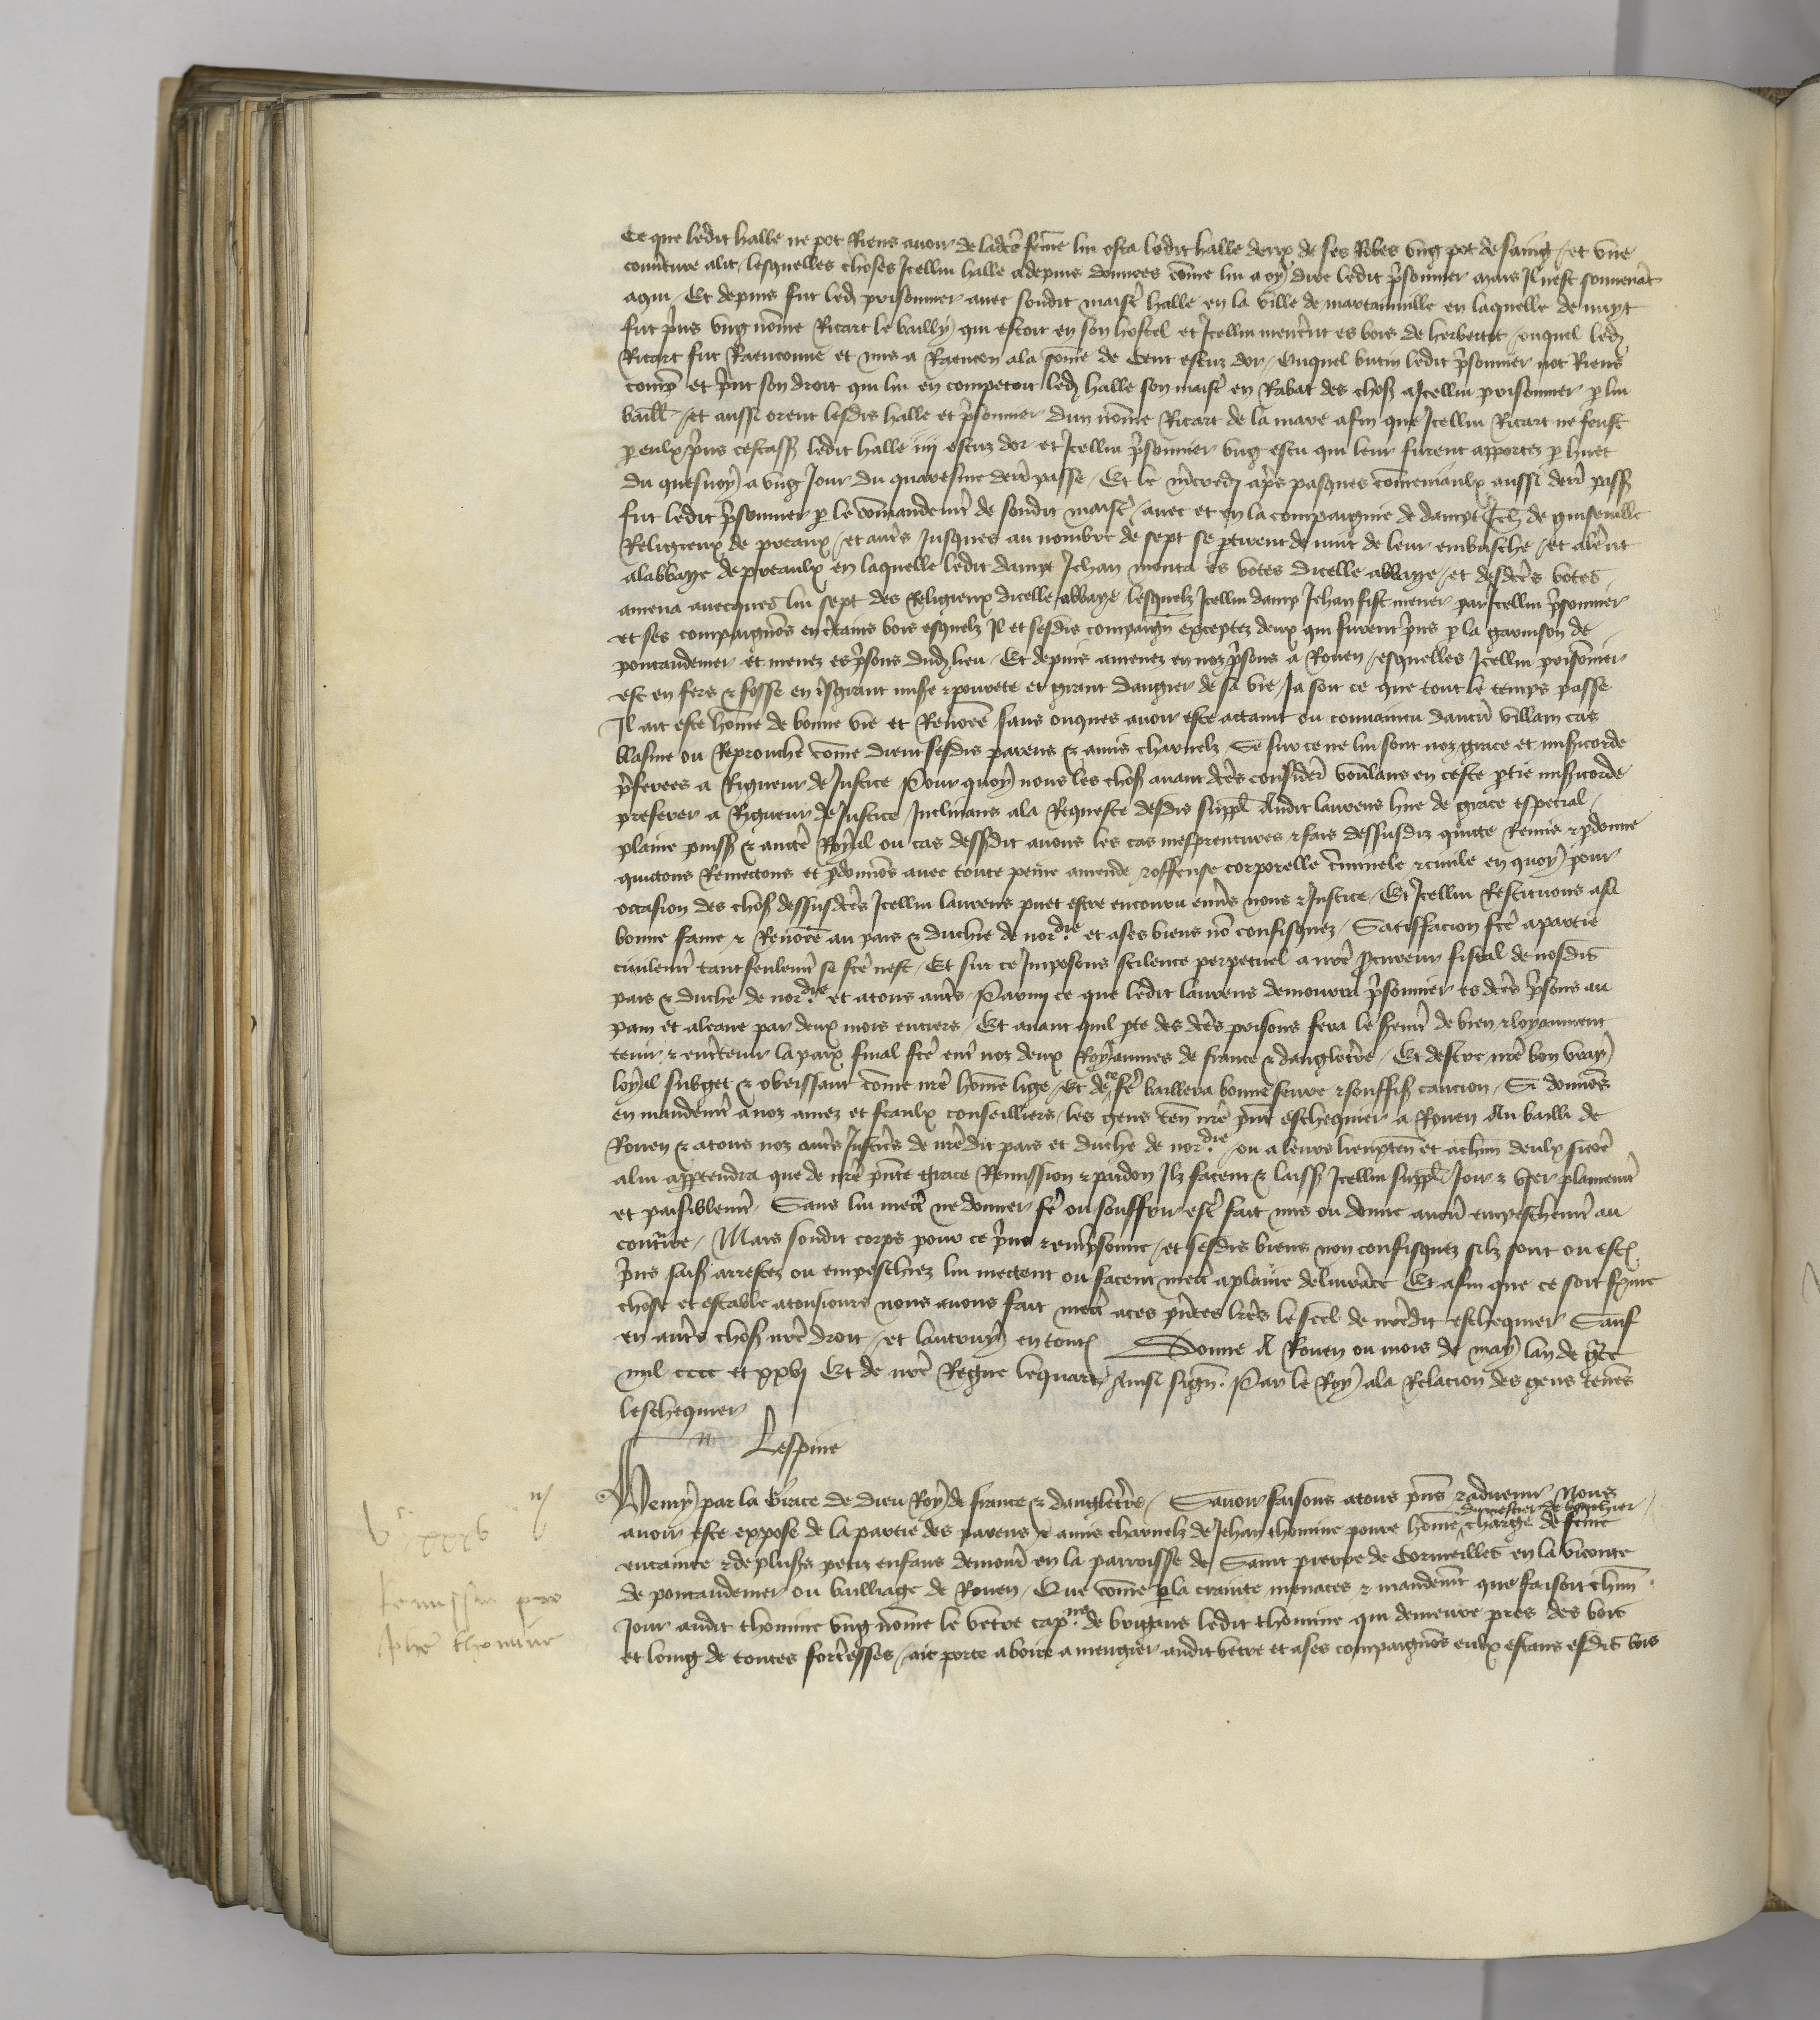 Ce que ledit halle ne pot Riens auoir de ladcē fēme lui osta ledit halle deux de ses Robes vng pot de saing / et vne
couuerture alit / lesquelles choses Jcellui halle a depuis donnees cōme lui a oy dire ledit p̃sonnier mais Jl nest souuenāt
a qui / Et depuis fut led prisonnier auec sondit maistr̃ halle en la ville de martainuille en laquelle de nuyt
fut p̃ns vng nōme Ricart le bailly qui estoit en son hostel et Jcellui menerēt es bois de / ouquel led
Ricart fut Raenconne et mis a Raencon ala sōme de Cent escuz dor / Duquel butin ledit p̃sonnier not Riens
et p̃nt son droit qui lui en competoit led halle son maistr̃ en Rabat des chos̃ a Jcellui prisonnier p lui
baill / et aussi orent lesdis halle et p̃sonnier dun nōme Ricart de la mare afin que Jcellui Ricart ne feust
p eulx p̃ns cestass̃ ledit halle iiij escuz dor et Jcellui p̃sonnier vng escu qui leur furent apportez p huet
du quesnoy a vng Jour du quaresme dern̄ passe / Et le m̃credi ap̃s pasques cōmeniaulx aussi dern̄ pass̃
fut ledit p̃sonnier p le cōmandemt de sondit maistr̃ / auec et en la compaignie de dampt Jeh de guiseuille
Religieux de preaux / et autr̃s Jusques au nombre de sept se ptirent de nuit de leur embusche / et alerēt
alabbaye de preaulx en laquelle ledit dampt Jehan monta es votes dicelle abbaye / et desdcēs votes
amena auecques lui sept des Religieux dicelle abbaye lesquelz Jcellui damp Jehan fist mener par Jcellui p̃sonnier
et ses compaignōs en c̃tains bois esquelz Jl et sesdis compaign̄ exceptez deux qui furent p̃ns p la garnison de
pontaudemer et menez es p̃sons dud lieu / Et depuis amenez en noz p̃sons a Rouen / esquelles Jcellui prisōnier
est en fers & fosse en tsgrant mis̃e & pourete et grant dangier de sa vie / Ja soit ce que tout le temps passe
Jl ait este hōme de bonne vie et Renōcē sans onques auoir este attaint ou conuaincu daucū villain cas
blasme ou Reprouche cōme dient sesdis parens & amis charnelz Se sur ce ne lui sont noz grace et mis̃icorde
p̃ferees a Rigueur de Justice Pour quoy nous les chos̃ auant dcēs considerē voulans en ceste ptie mis̃icorde
preferer a Rigueur de Justice / Jnclinans ala Requeste desdis suppl Audit laurens hue de grace especial
plaine puiss̃ & auctē Royal ou cas dessd̃it auons les cas mesprentures & fais dessusdiz quicte Remis & pdonne
quictons Remectons et pdonnōs auec toute peine amende & offense corporelle c̃minele & ciuile en quoy pour
occasion des chos̃ dessusdcēs Jcellui laurens puet estre encouru enũs nous & Justice / Et Jcellui Restituons asa
bonne fame & Renōcē au pais & duchie de nordie et ases biens nō confisquez / Satisfacion fcē apartie
ciuilemt tant seulemt se fcē nest / Et sur ce Jmposons scilence perpetuel a nr̃e pcureur fiscal de nosdis
pais & duchie de nordie et atous autr̃s / Parmi ce que ledit laurens demourra p̃sonnier es dcēs p̃sons au
pain et aleaue par deux mois entiers / Et auant quil pte des dcēs prisons fera le s̃emt de bien & loyaument
tenir & entr̃tenir la paix final fcē entr̃ noz deux Royaumes de france & dangletr̃e / Et destre nr̃e bon vray
loyal subget & obeissant cōme nr̃e hōme lige / Et de ce fẽ baillera bonne seure & souffis̃ caucion / Si donnōs
en mandemt a noz amez et feaulx conseilliers / les gens ten nr̃e p̃nt eschequier a Rouen Au bailli de
Rouen & atous noz autr̃s Justicĩs de nr̃edit pais et duchie de nordie / ou a leurs lieuxten et achun deulx sicōē
alui apptendra que de nr̃e p̃nte grace Remission & pardon Jlz facent & laiss̃ Jcellui suppl Joir & vser plainemt
et paisiblemt / Sans lui mectr̃ ne donner fẽ ou souffrir estr̃ fait mis ou donne aucū empeschemt au
contr̃ire / Mais sondit corps pour ce p̃ns & emp̃sonne / et sesdis biens non confisquez silz sont ou est
p̃ns sais̃ arrestez ou empeschiez lui mectent ou facent mectr̃ aplaine deliurāce Et afin que ce soit ferme
chose et estable atousiours nous auons fait mectr̃ aces p̃ntes lr̃es le seel de nr̃edit eschequier Sauf
en autr̃s chos̃ nr̃e droit / et lautruy en tout Donne A Rouen ou mois de may lan de gr̃ce
mil cccc et xxvj Et de nr̃e Regne le quart Ainsi sign̄. Par le Roy ala Relacion des gens tenēs
leschequier
Lespine
Henry par la Grace de dieu Roy de france & dangletr̃e / Sauoir faisons atous p̃ns & aduenir Nous
auoir este expose de la partie des parens & amis charnelz de Jehan thomine poure hōme du mestier de bouchier charge de fēme
encainte & de plus̃s petiz enfans demourē en la parroisse de Saint pierre de Cormeilles en la viconte
de pontaudemer ou bailliage de Rouen / Que cōme p la crainte menaces & mandemt que faisoit chun
Jour audit thomine vng nōme le ventre capne de brigans ledit thomine qui demeure pres des bois
et loing de toutes fortr̃esses / ait porte aboire a mengier audit ventre et ases compaignōs eulx estans esdis bois
vc xxxv
ij
Remissio pro
Johe thomine